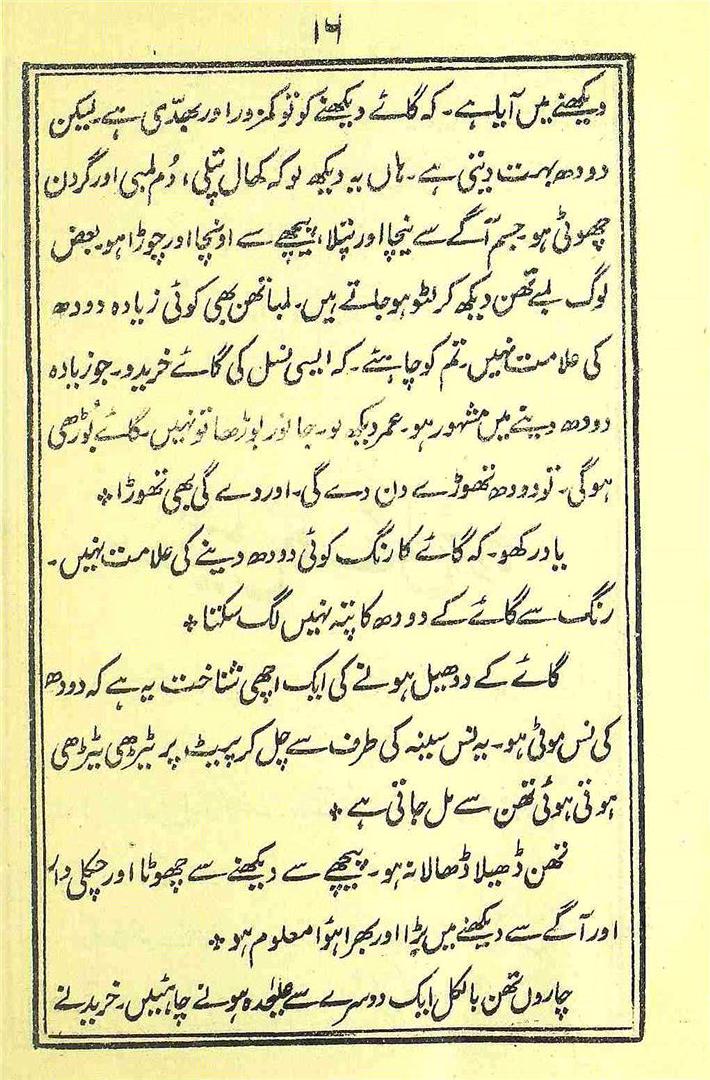 ۱۶
دیکھنے میں آیا ہے۔ کہ گائے دیکھنے کو تو کمزور اور بھدّی ہے۔ لیکن
دودھ بہت دیتی ہے۔ ہاں یہ دیکھ لو کہ کھال پتلی، دُم لمبی اور گردن
چھوٹی ہو۔ جسم آگے سے نیچا اور پتلا، پیچھے سے اونچا اور چوڑا ہو۔ بعض
لوگ لمبے تھن دیکھ کر لٹو ہو جاتے ہیں۔ لمبا تھن بھی کوئی زیادہ دودھ
کی علامت نہیں۔ تم کو چاہئے۔ کہ ایسی نسل کی گائے خریدو۔ جو زیادہ
دودھ دینے میں مشہور ہو۔ عمر دیکھ لو۔ جانور بوڑھا تو نہیں۔ گائے بُوڑھی
ہوگی۔ تو دودھ تھوڑے دن دے گی۔ اور دے گی بھی تھوڑا *
یاد رکھو۔ کہ گائے کا رنگ کوئی دودھ دینے کی علامت نہیں۔
رنگ سے گائے کے دودھ کا پتہ نہیں لگ سکتا *
گائے کے ددھیل ہونے کی ایک اچھی شناخت یہ ہے کہ دودھ
کی نس موٹی ہو۔ یہ نس سینہ کی طرف سے چل کر پیٹ پر ٹیڑھی ٹیڑھی
ہوتی ہوئی تھن سے مل جاتی ہے *
تھن ڈھیلا ڈھالا نہ ہو۔ پیچھے سے دیکھنے سے چھوٹا اور چکلی دار
اور آگے سے دیکھنے میں بڑا اور بھرا ہؤا معلوم ہو *
چاروں تھن بالکل ایک دوسرے سے علیٰحدہ ہونے چاہئیں۔ خریدنے